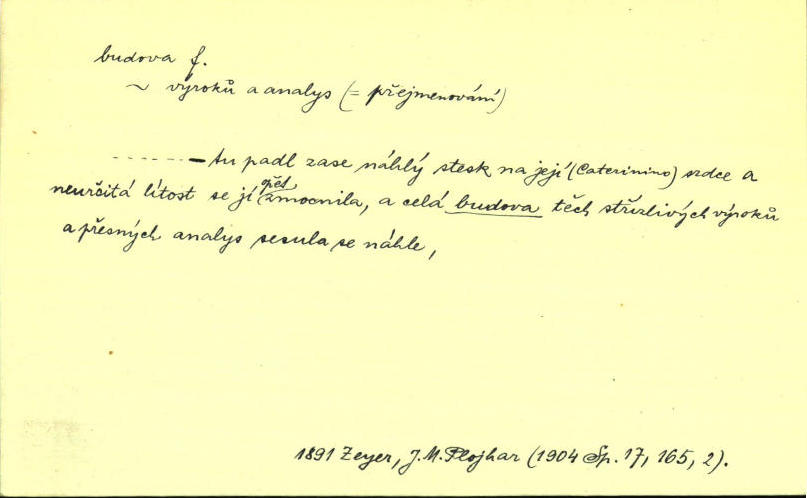 budova f.
~ výroků a analys (= přejmenování)
- - - - - - — tu padl zase náhlý stesk na její (Caterinino) srdce a
neurčitá lítost se jí opět zmocnila, a celá budova těch střízlivých výroků
a přesných analys sesula se náhle,
1891 Zeyer, J. M. Plojhar (1904 Sp. 17, 165, 2).